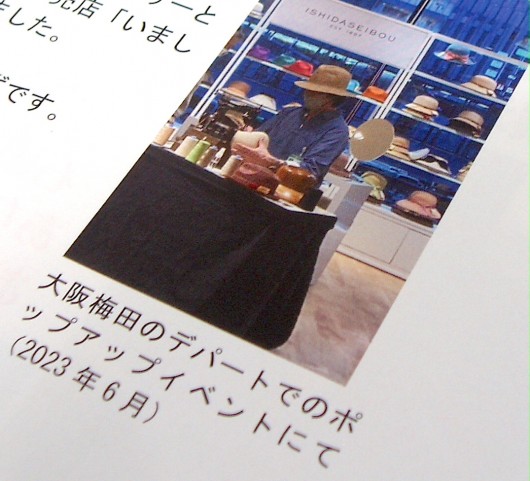 ーと
売店「いまし
ました。
です。
ISHIDASEIBOU
大阪梅田のデパートでのポ
ップアップイベントにて
(2023年6月)